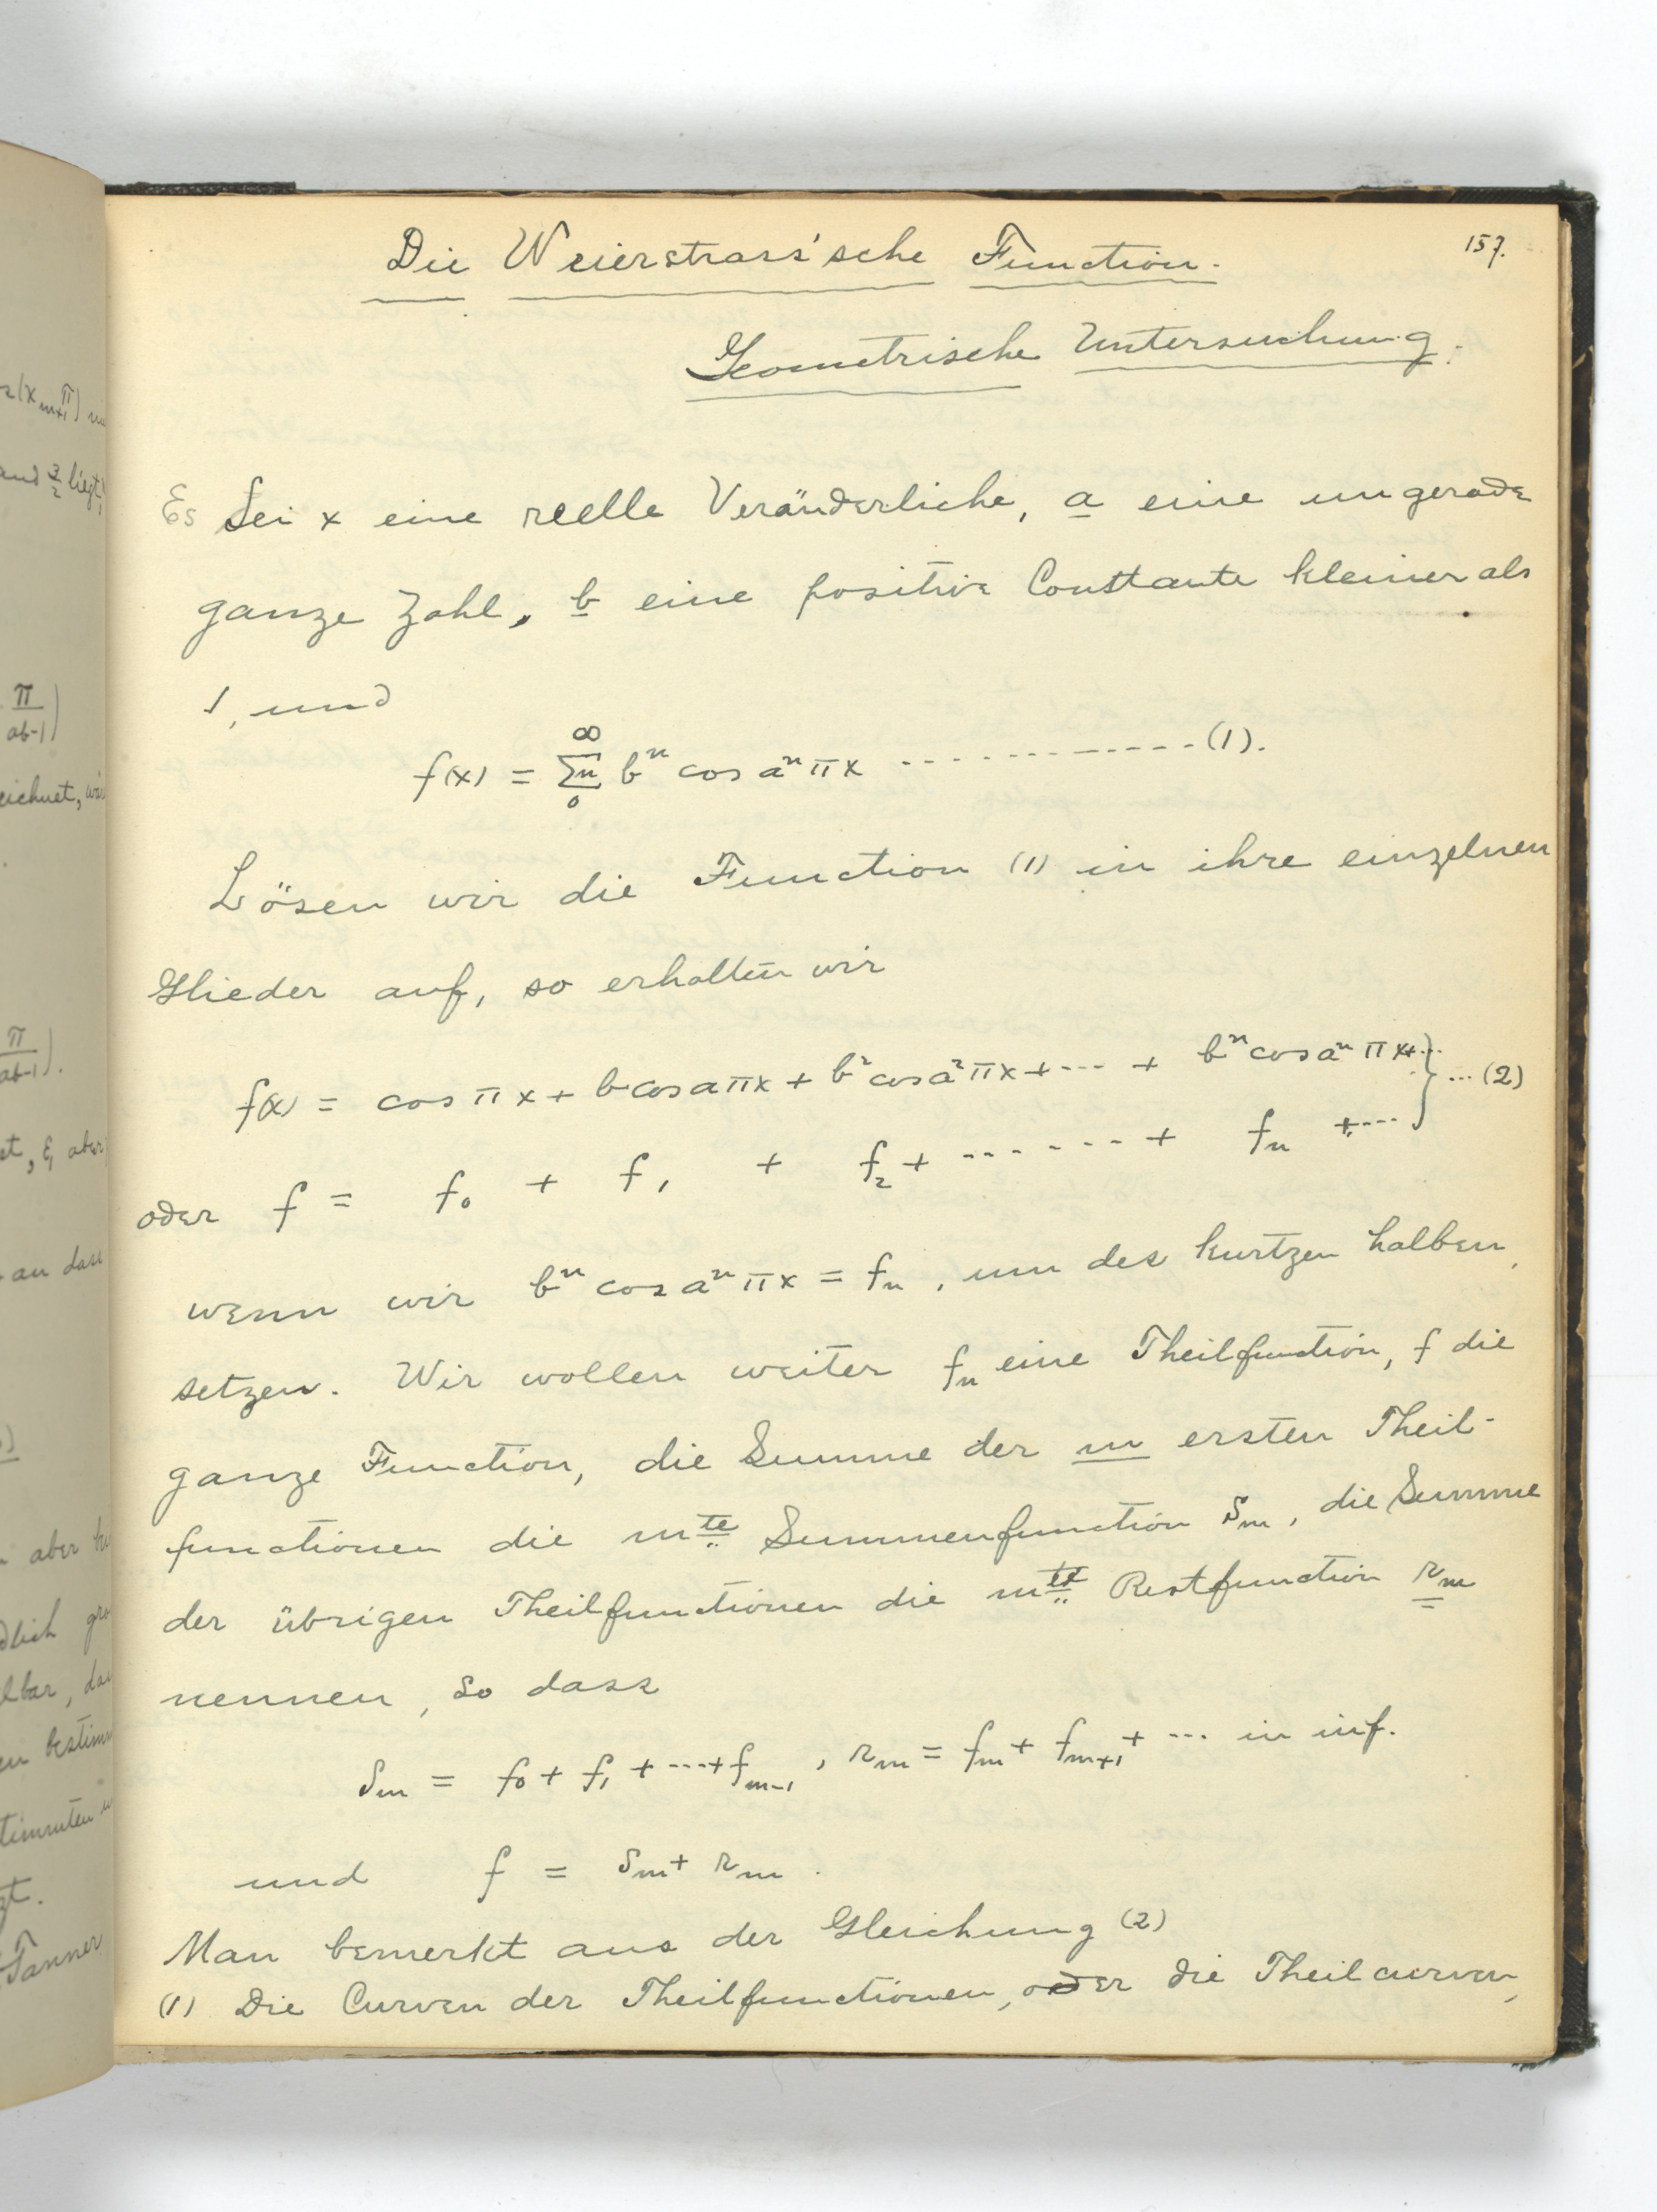 157.
Die Weierstrass'sche Function.
Geometrische Untersuchung.
Es Sei x eine reelle Veränderliche, a eine ungerade
ganze Zahl, b eine positive Constante kleiner als
1, und
f(x) = ∑n_0^∞ b^n cos a^n π x ------------(1).
Lösen wir die Function (1) in ihre einzelnen
Glieder auf, so erhalten wir
f(x) = cos π x + b cos a π x + b^2 cos a^2 π x + --- + b^n cos a^n π x + ... } ... (2)
oder f = f_0 + f_1 + f_2 + ------ + f_n + ----
wenn wir b^n cos a^n π x = f_n, um des kurtzen halben,
setzen. Wir wollen weiter f_n eine Theilfunction, f die
ganze Function, die Summe der m ersten Theil-
functionen die m^te Summenfunction S_m, die Summe
der übrigen Theilfunctionen die m^te Restfunction r_m
nennen, so dass
S_m = f_0 + f_1 + ---- + f_{m-1}, r_m = f_m + f_{m+1} + --- in inf.
und f = S_m + r_m.
Man bemerkt aus der Gleichung (2)
(1) Die Curven der Theilfunctionen, oder die Theilcurven,
π
ab-1
und 3/2 liegt,
eichnet,
π
ab-1
st, ξ aber
an dass
aber
dlich
lbar,
zt.
Tanner